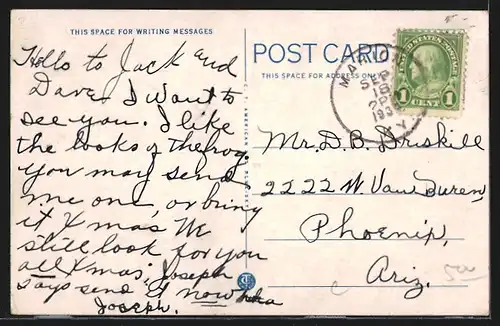 THIS SPACE FOR WRITING MESSAGES
Hello to Jack and
Dave. I want to
see you. I like
the looks of the frog.
you may send
me one, or bring
it Xmas We
still look for you
all Xmas. Joseph
says send it now
Joseph.
POST CARD
THIS SPACE FOR ADDRESS ONLY
UNITED STATES POSTAGE
1 CENT 1
MARION
SEP
18
PM
KY.
Mr. D. B. Driskill
2222 W. Van Buren,
Phoenix,
Ariz.